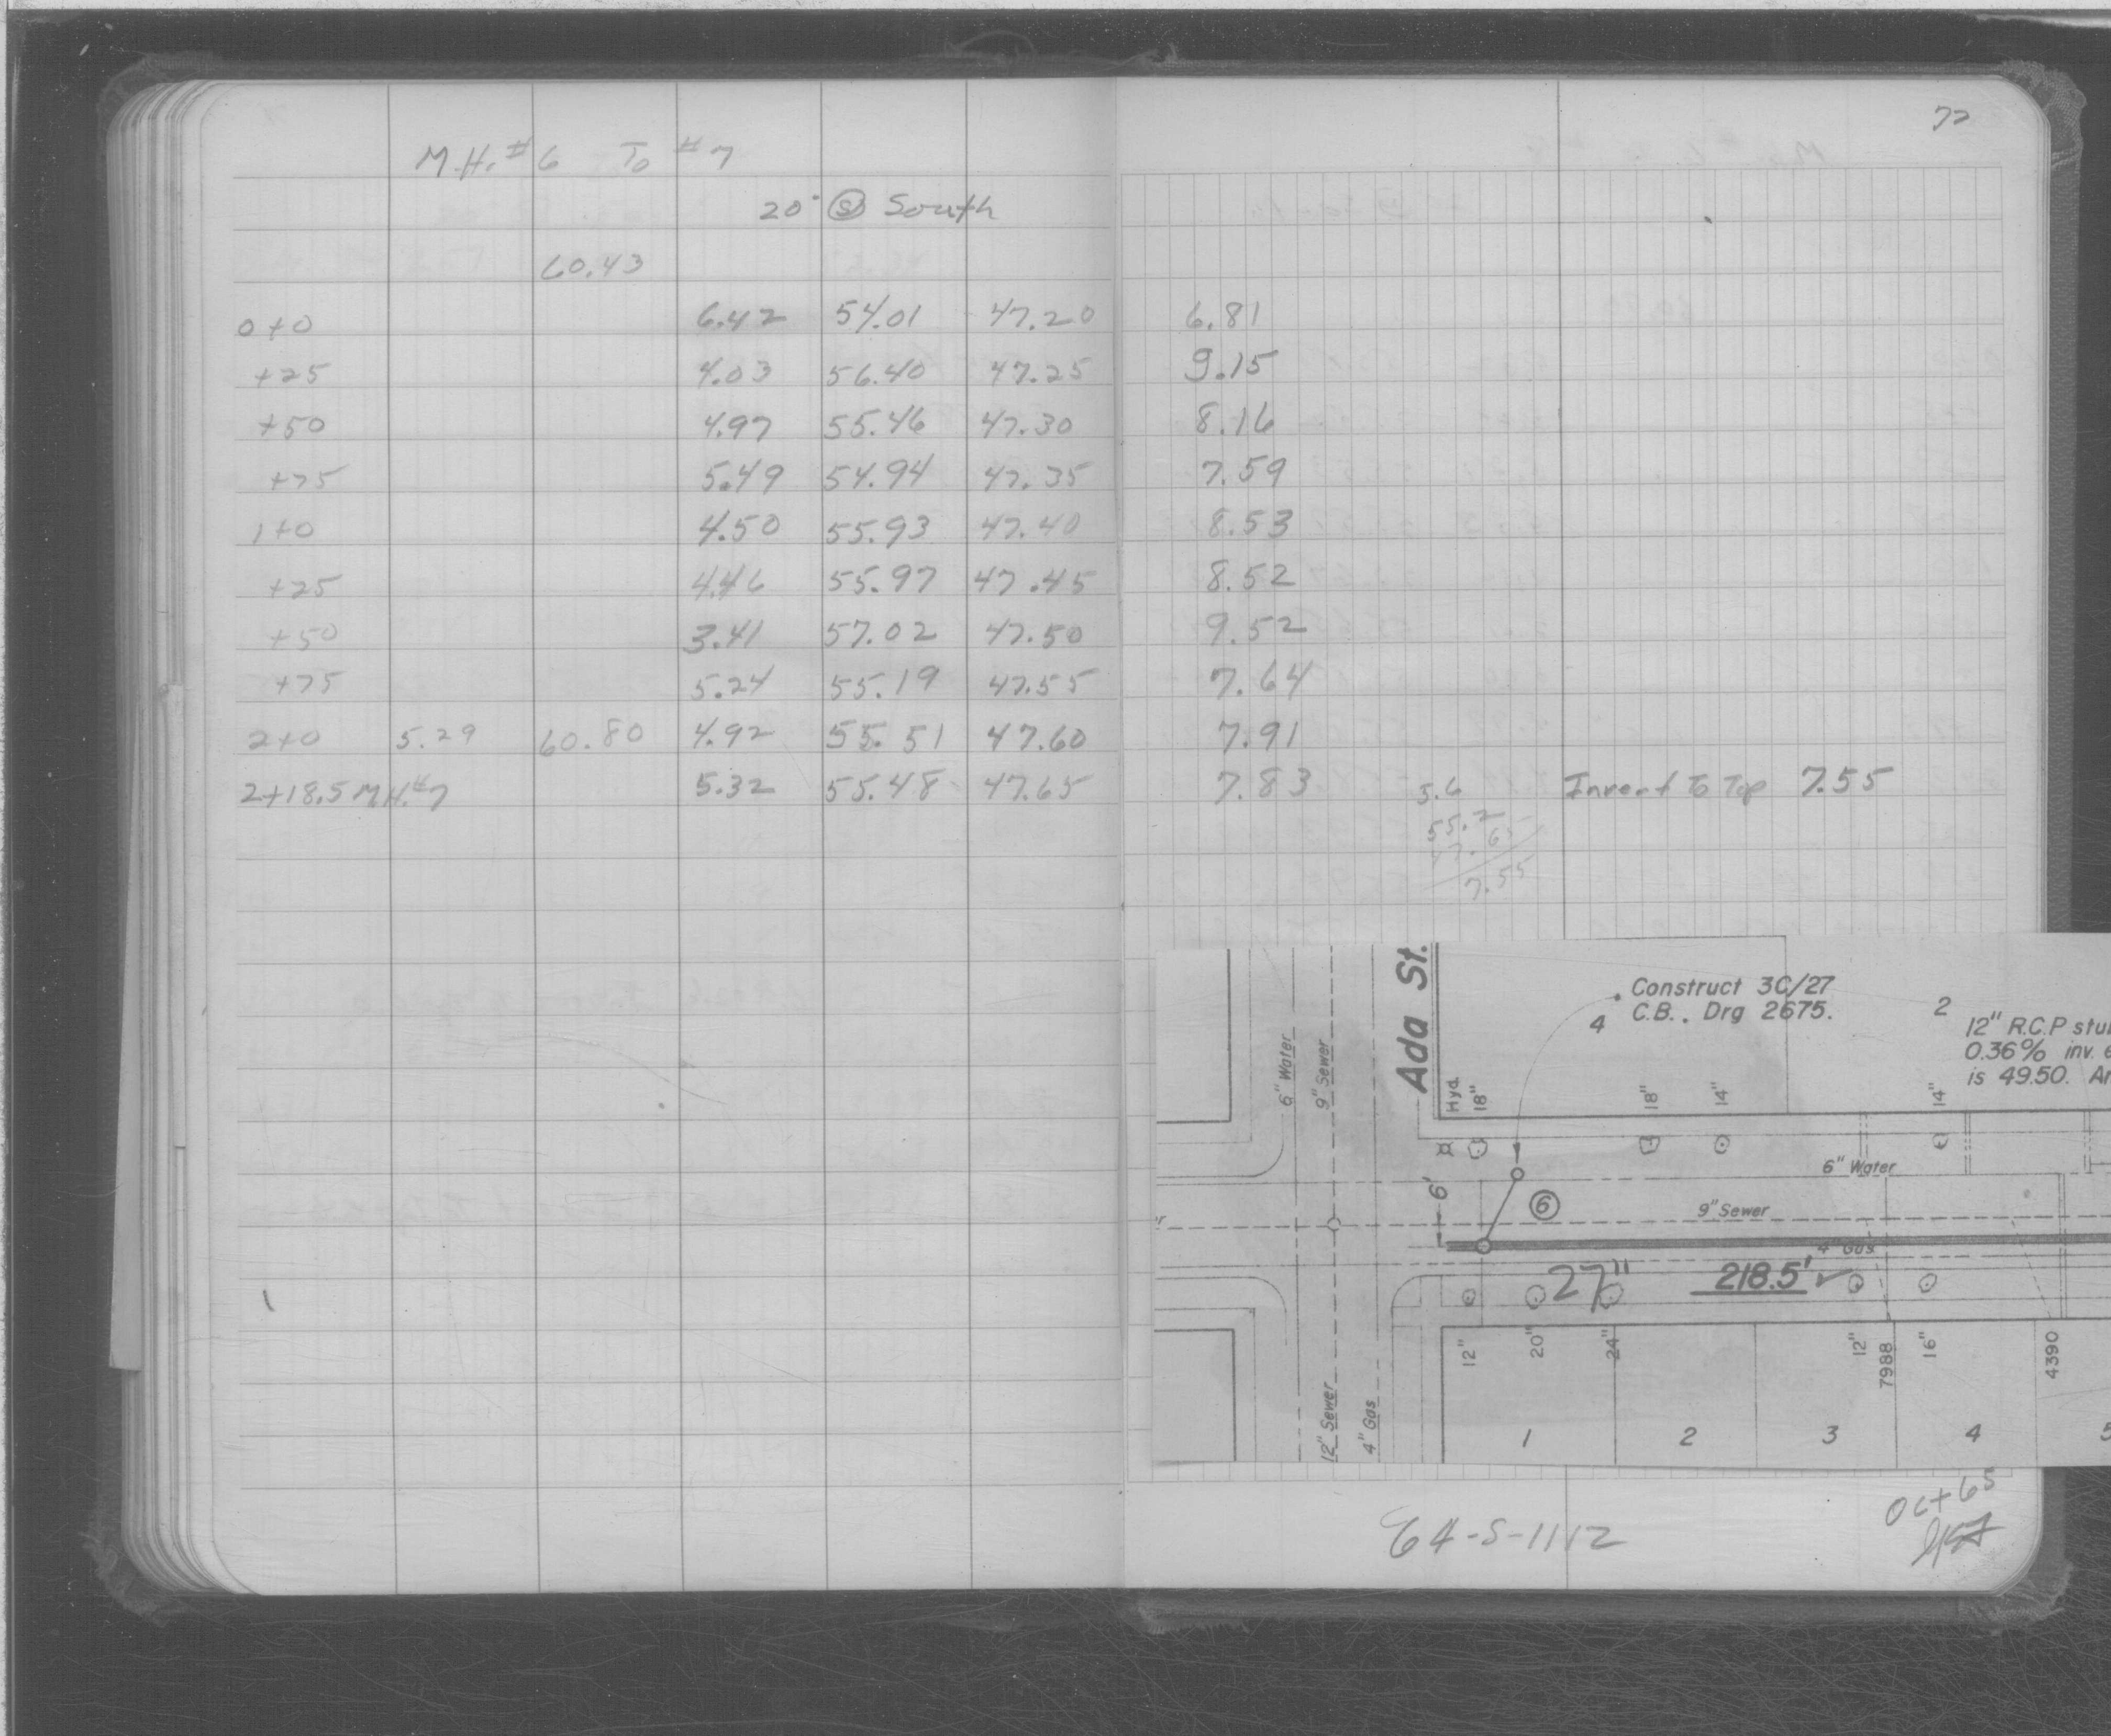 72
M.H. #6 To #7
20' Ⓢ South
60.43
0+0 6.42 54.01 47.20 6.81
+25 4.03 56.40 47.25 9.15
+50 4.97 55.46 47.30 8.16
+75 5.49 54.94 47.35 7.59
1+0 4.50 55.93 47.40 8.53
+25 4.46 55.97 47.45 8.52
+50 3.41 57.02 47.50 9.52
+75 5.24 55.19 47.55 7.64
2+0 5.29 60.80 4.92 55.51 47.60 7.91
2+18.5 M.H.#7 5.32 55.48 47.65 7.83 5.6 Invert To Top 7.55
55.2
47.65
7.55
Ada St.
Construct 3C/27
C.B.. Drg 2675.
4
2
12" R.C.P
0.36% inv.
is 49.50.
6" Water
9" Sewer
Hyd.
18"
18"
14"
14"
6" Water
6'
⑥
9" Sewer
4" Gas
27" 218.5' ✓
12"
20"
24"
12"
7988
16"
4390
12" Sewer
4" Gas
1 2 3 4 5
64-S-1112
Oct 65